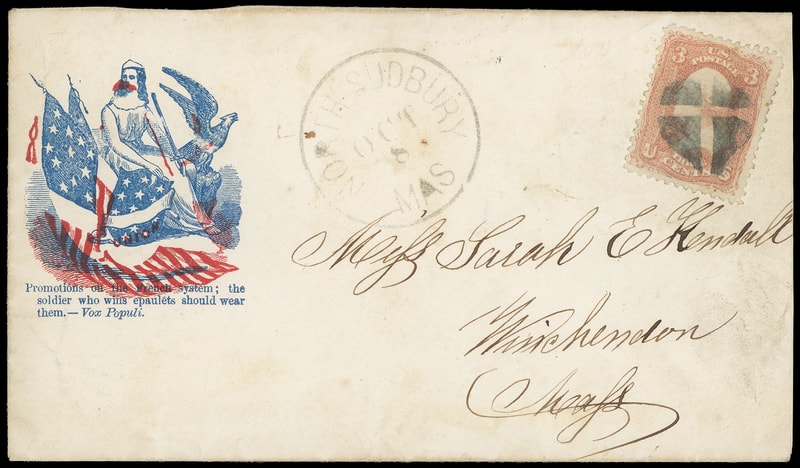 UNION
Promotions on the French system; the
soldier who wins epaulets should wear
them.—Vox Populi.
NORTH SUDBURY
OCT
8
MAS
3 U.S. 3
POSTAGE
Miss Sarah E Kendall
Winchendon
Mass